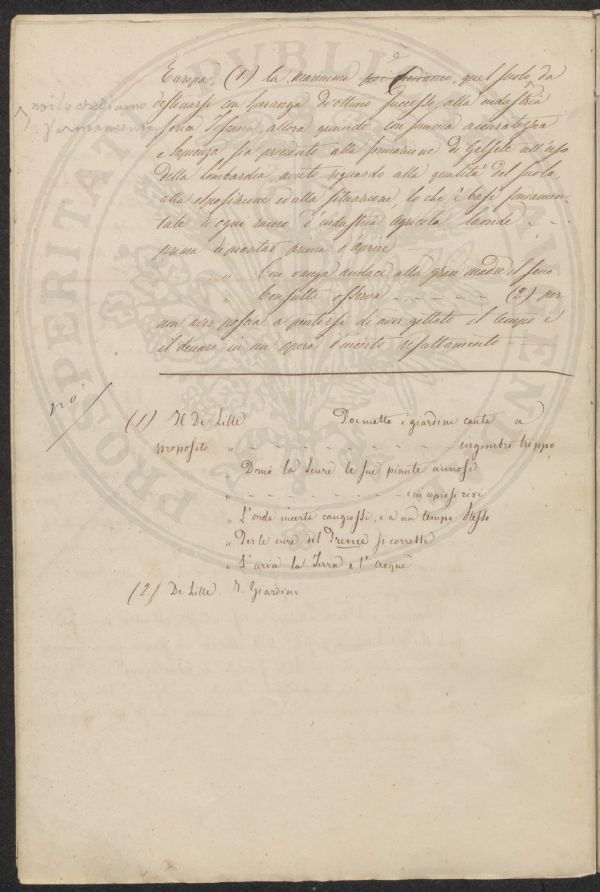 è
Europa, (1) la maremma quel suolo da
noi lo crediamo
fermamente
destinarsi con speranza di ottimo successo, alla industria
serica Toscana, allora quando con somma accuratezza
e sapienza sia presieduto alla formazione di Gelsete all'uso
della Lombardia, avuto riguardo alla qualità del suolo
alla esposizione ed alla situazione, lo che è base fondamen-
tale di ogni ramo d'industria Agricola laonde - -
prima di piantar prima d'aprire
" Con vanga audace alla gran madre il seno
" Consulta osserva - - - - - - (2) per
non aver poscia a pentirsi di aver gittato il tempo e
il denaro in un opera d'incerto resultamento
no
(1) Il De Lille i giardini canta a
proposito " - - - - - - - - - - - ingombre troppo
" Domò la scure le sue piante annose
" - - - - - - - - - - - e in copiosi rivi
" L'onda incerta e a un tempo stesso
" Per le cure del si corresse
" L'aria la Terra e l'acque
(2) De Lille. I Giardini
PROSPERITATI PUBLICAE